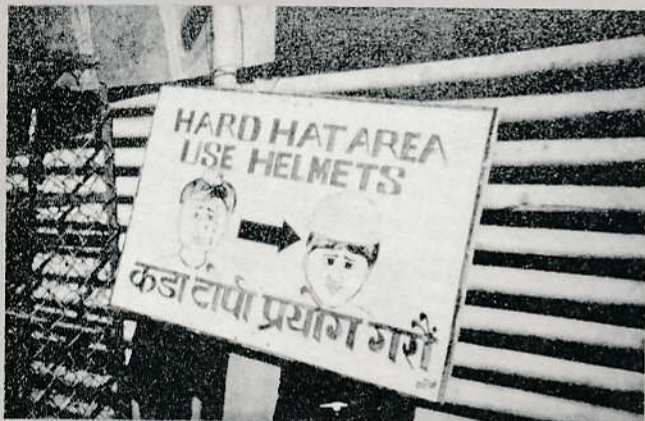 HARD HAT AREA
USE HELMETS
कडा टोपी प्रयोग गरौं